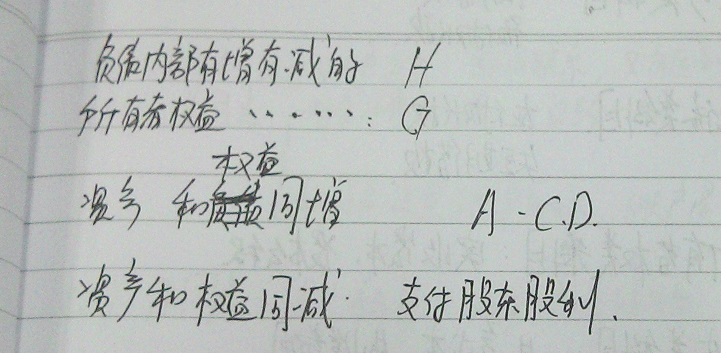 负债内部有增有减的 H
所有者权益 ······: G
权益
资产 和负债同增 A - C.D.
资产和权益同减. 支付股东股利.